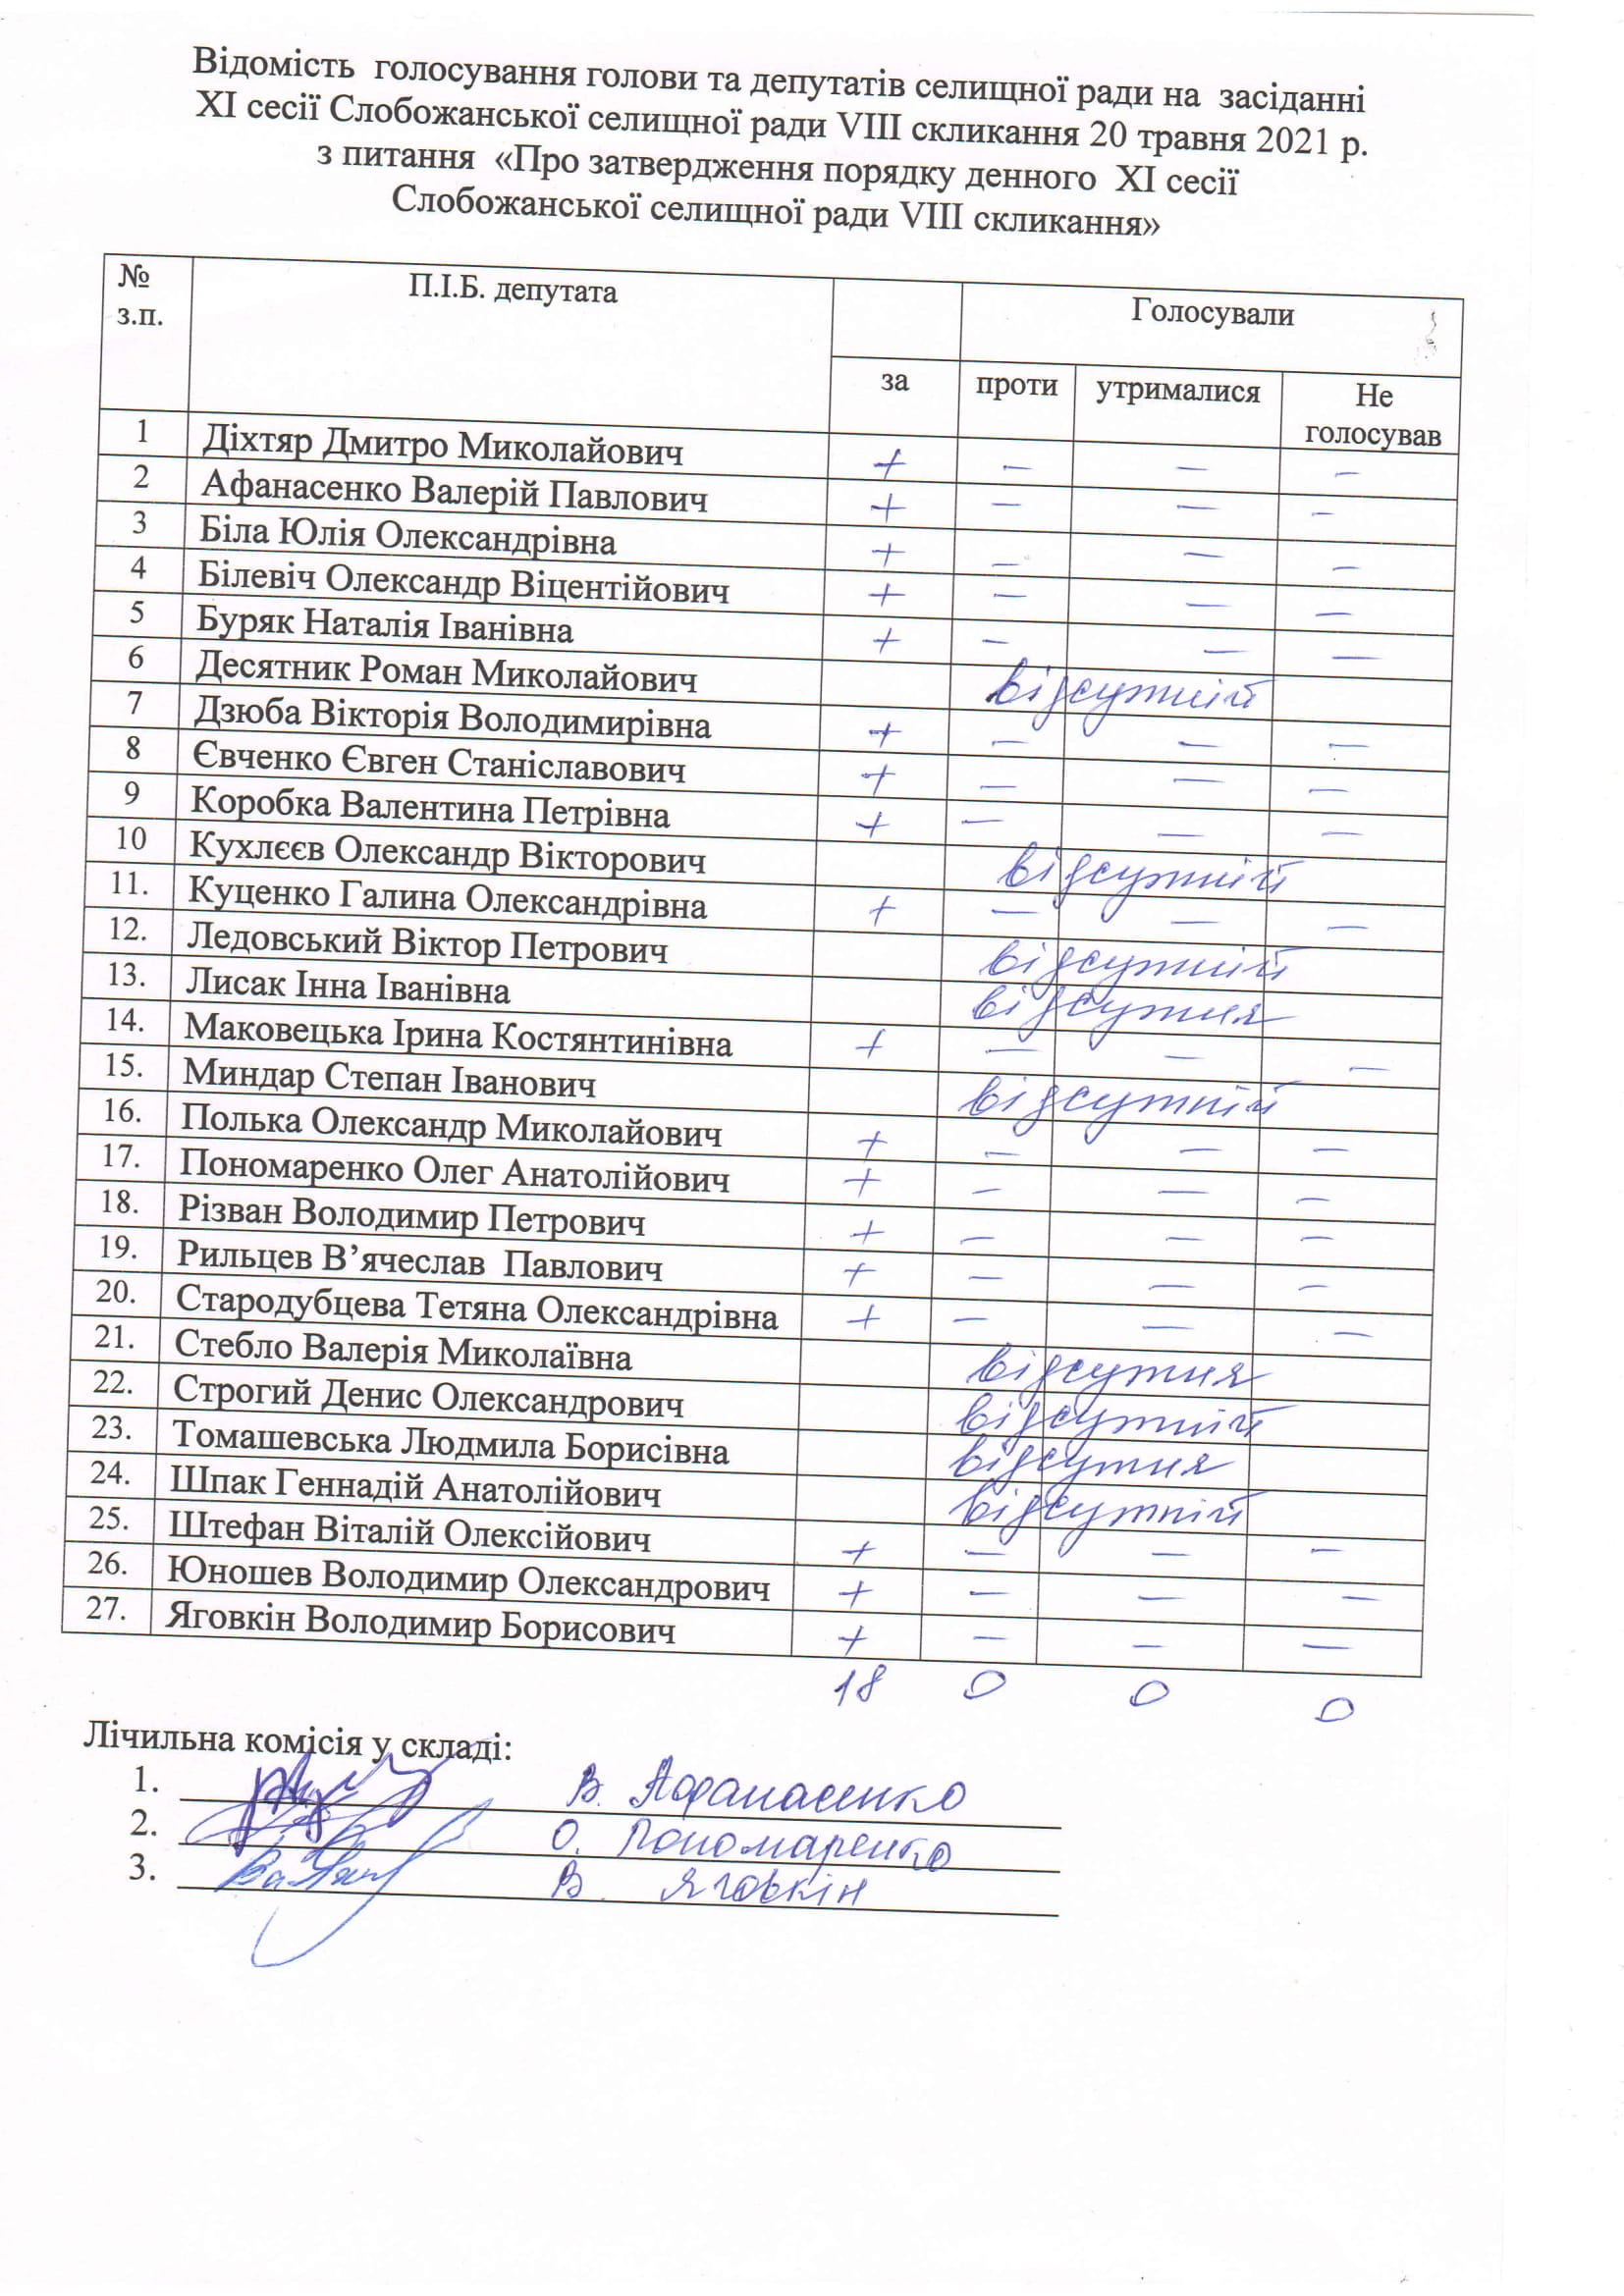 Відомість голосування голови та депутатів селищної ради на засіданні
XI сесії Слобожанської селищної ради VIII скликання 20 травня 2021 р.
з питання «Про затвердження порядку денного XI сесії
Слобожанської селищної ради VIII скликання»
№ з.п. П.І.Б. депутата Голосували
за проти утрималися Не голосував
1 Діхтяр Дмитро Миколайович + – – –
2 Афанасенко Валерій Павлович + – – –
3 Біла Юлія Олександрівна + – – –
4 Білевіч Олександр Віцентійович + – – –
5 Буряк Наталія Іванівна + – – –
6 Десятник Роман Миколайович відсутній
7 Дзюба Вікторія Володимирівна + – – –
8 Євченко Євген Станіславович + – – –
9 Коробка Валентина Петрівна + – – –
10 Кухлєєв Олександр Вікторович відсутній
11. Куценко Галина Олександрівна + – – –
12. Ледовський Віктор Петрович відсутній
13. Лисак Інна Іванівна відсутня
14. Маковецька Ірина Костянтинівна + – – –
15. Миндар Степан Іванович відсутній
16. Полька Олександр Миколайович + – – –
17. Пономаренко Олег Анатолійович + – – –
18. Різван Володимир Петрович + – – –
19. Рильцев В’ячеслав Павлович + – – –
20. Стародубцева Тетяна Олександрівна + – – –
21. Стебло Валерія Миколаївна відсутня
22. Строгий Денис Олександрович відсутній
23. Томашевська Людмила Борисівна відсутня
24. Шпак Геннадій Анатолійович відсутній
25. Штефан Віталій Олексійович + – – –
26. Юношев Володимир Олександрович + – – –
27. Яговкін Володимир Борисович + – – –
18 0 0 0
Лічильна комісія у складі:
1. В. Афанасенко
2. О. Пономаренко
3. В. Яговкін